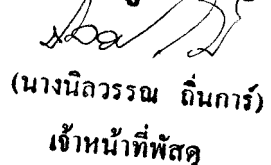 (นางนิลวรรณ ถิ่นการ์)
เจ้าหน้าที่พัสดุ